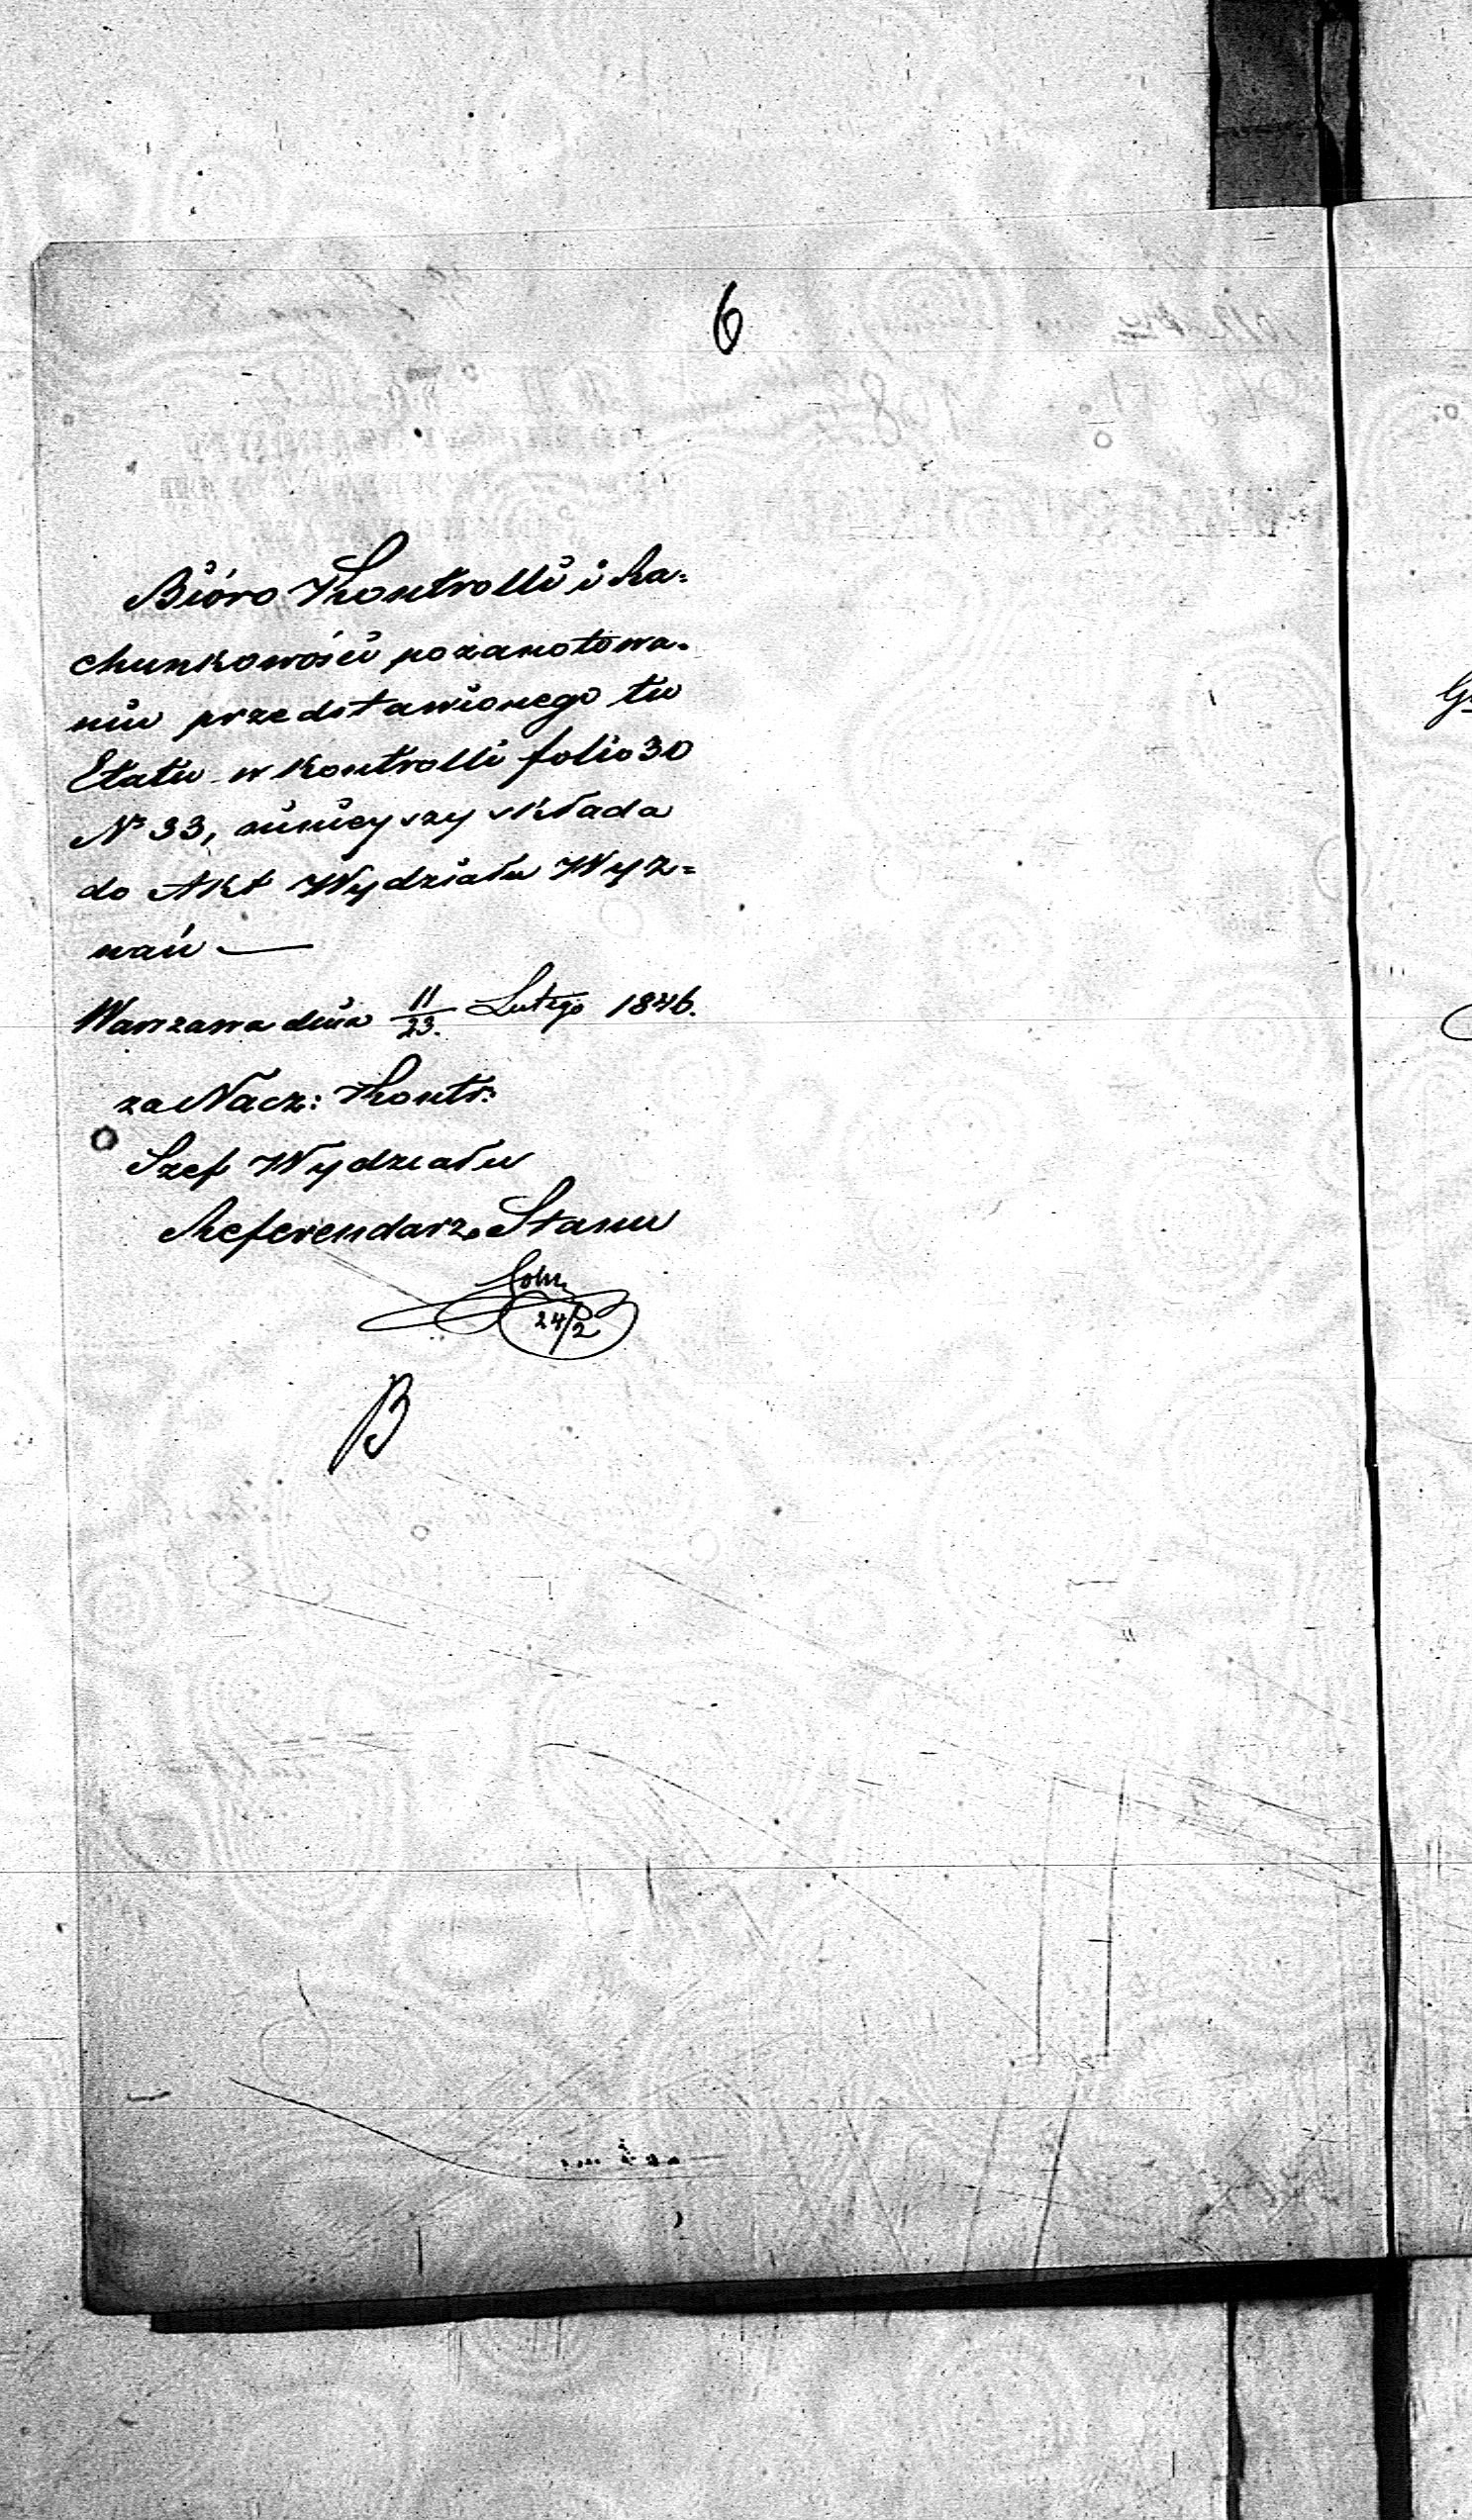 6
Bióro Kontrolli i Ra=
chunkowości po zanotowa=
niu przedstawionego tu
Etatu w Kontrolli folio 30
No 33, niniejszy składa
do Akt Wydziału Wyz=
nań —
Warszawa dnia 11/23. Lutego 1846.
za Nacz: Kontr:
Szef Wydziału
Referendarz Stanu
24/2
B